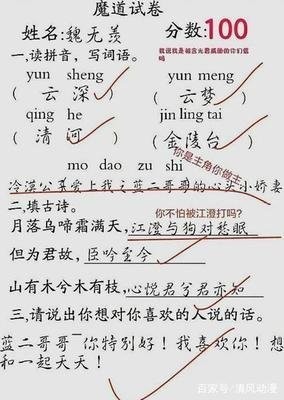 魔道试卷
姓名:魏无羡 分数:100
一,读拼音,写词语。
我说我是被含光君威胁的你们信吗
yun sheng yun meng
(云深) (云梦)
qing he jin ling tai
(清河) (金陵台)
你是主角你做主
mo dao zu shi
冷漠公子爱上我之蓝二哥哥的心头小娇妻
二,填古诗。
你不怕被江澄打吗?
月落乌啼霜满天,江澄与狗对愁眠
但为君故,臣吟至今
山有木兮木有枝,心悦君兮君亦知
三,请说出你想对你喜欢的人说的话。
蓝二哥哥~你特别好!我喜欢你!想
和一起天天!
百家号/清风动漫